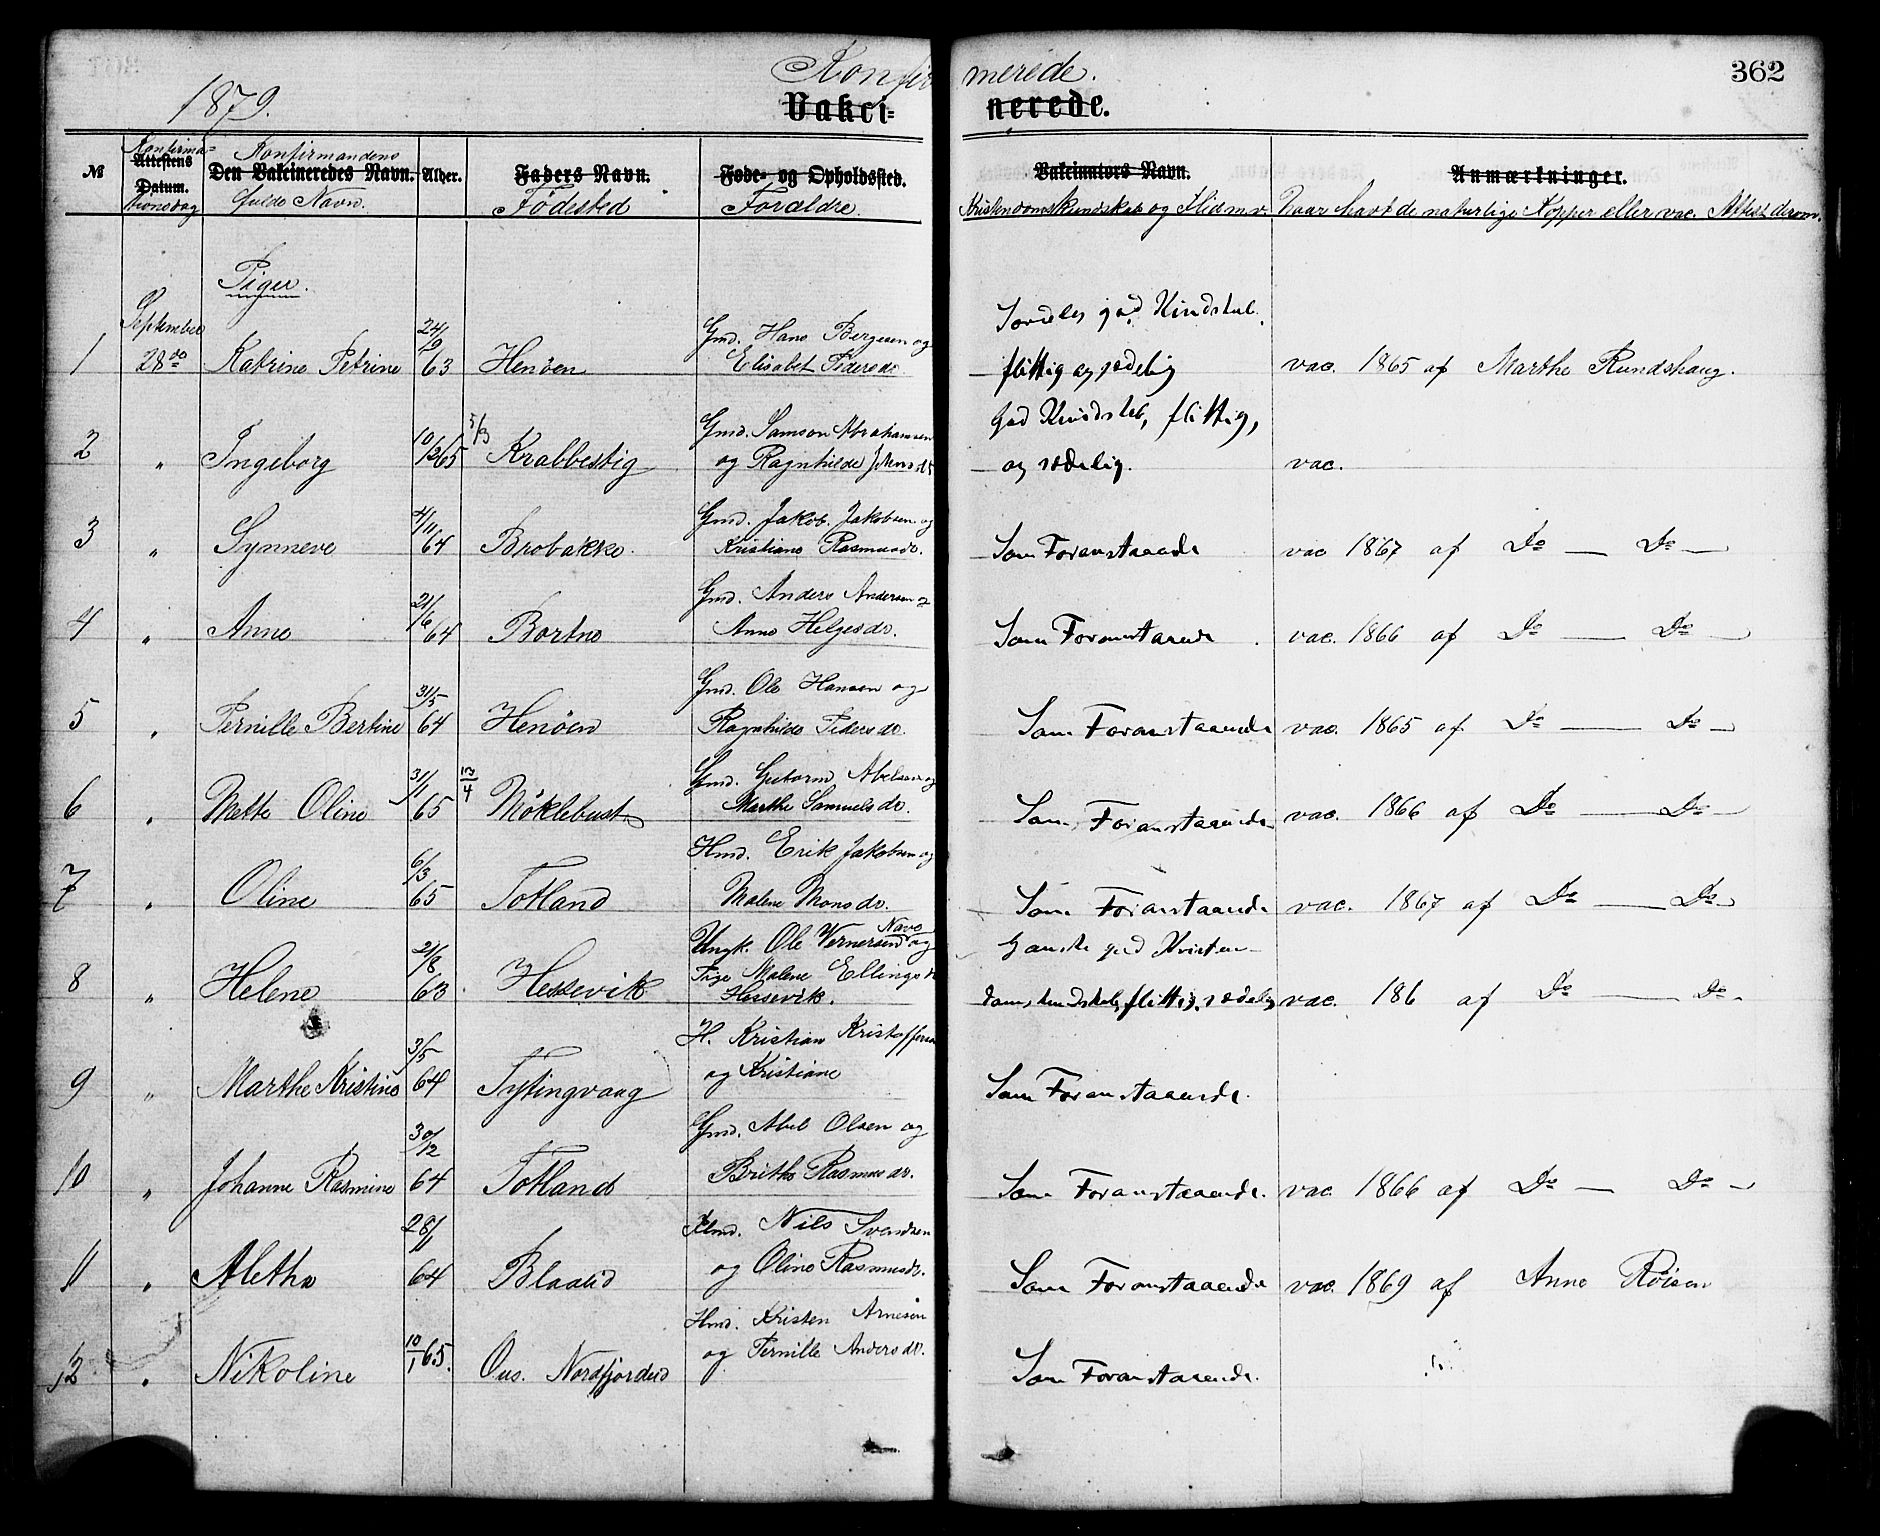 Konfirmerede.
362
1879.
Vakcinerede.
№ Attestens Datum. Den Vakcineredes Navn. Alder. Faders Navn. Føde- og Opholdssted. Vakcinators Navn. Anmærkninger.
Konfirmandens fulde Navn. Fødested Forældre. Kristendomskundskab og Flid m.v. Naar havt de naturlige Kopper eller vac. Attest derom.
Piger.
September
1 28de Katrine Petrine 24/9 63 Henöen Gmd. Hans Bergesen og Elisabet Pedersdr. Særdeles god Kundskab, flittig og sædelig vac. 1865 af Marthe Rundshaug.
2 " Ingeborg 10/12 65 5/3 Krabbestig Gmd. Samson Abrahamsen og Ragnhilde Jensdr God Kundskab, flittig, og sædelig. vac.
3 " Synneve 4/11 64 Brobakke. Gmd. Jakob Jakobsen og Kristiane Rasmusdr. Som Foranstaaende vac 1867 af Do — Do —
4 " Anne 21/6 64 Bortne Gmd. Anders Andersen og Anne Helgesdr. Som Foranstaaende. vac. 1866 af Do — Do —
5 " Pernille Bertine 31/5 64 Henöen Gmd. Ole Hansen og Ragnhilde Pedersdr. Som Foranstaaende vac. 1865 af Do — Do —
6 " Mette Oline 31/1 65 13/4 Möklebust Gmd. Guttorm Abelsen og Marthe Samuelsdr. Som Foranstaaende vac. 1866 af Do — Do —
7 " Oline 6/3 65 Totland Hmd. Erik Jakobsen og Malene Monsdr. Som Foranstaaende vac. 1867 af Do — Do —
8 " Helene 21/8 63 Hessevik Ungk. Ole Vernersen Nave og Pige Malene Ellingsdr Hessevik. Ganske god Kristendomskundskab, flittig, sædelig vac. 186 af Do — Do —
9 " Marthe Kristine 3/5 64 Tytingvaag H. Kristian Kristoffersen og Kristiane Som Foranstaaende.
10 " Johanne Rasmine 30/12 64 Totland Gmd. Abel Olsen og Brithe Rasmusdr. Som Foranstaaende. vac. 1866 af Do — Do —
11 " Alethe 28/11 64 Blaalid Hmd. Nils Svendsen og Oline Rasmusdr. Som Foranstaaende vac. 1869 af Anne Röisen
12 " Nikoline 10/1 65. Ous. Nordfjordeid Hmd. Kristen Arnesen og Pernille Andersdr. Som Foranstaaende.